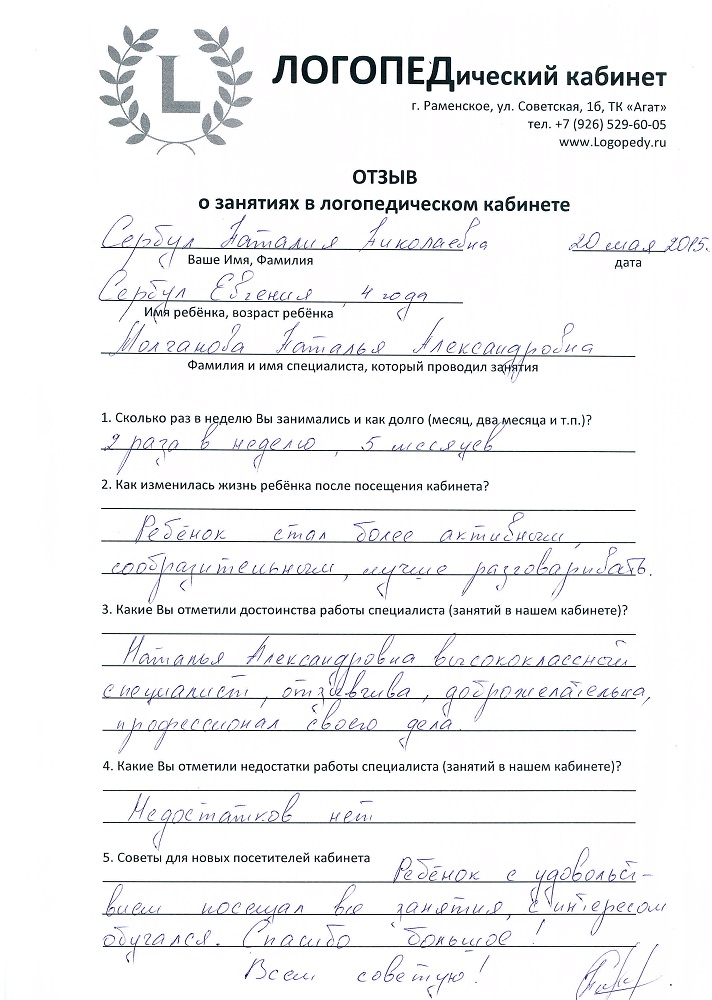 L
ЛОГОПЕДический кабинет
г. Раменское, ул. Советская, 1б, ТК «Агат»
тел. +7 (926) 529-60-05
www.Logopedy.ru
ОТЗЫВ
о занятиях в логопедическом кабинете
Сербул Наталия Николаевна 20 мая 2015г.
Ваше Имя, Фамилия дата
Сербул Евгения, 4 года
Имя ребёнка, возраст ребёнка
Молчанова Наталья Александровна
Фамилия и имя специалиста, который проводил занятия
1. Сколько раз в неделю Вы занимались и как долго (месяц, два месяца и т.п.)?
2 раза в неделю, 5 месяцев
2. Как изменилась жизнь ребёнка после посещения кабинета?
Ребёнок стал более активным,
сообразительным, лучше разговаривать.
3. Какие Вы отметили достоинства работы специалиста (занятий в нашем кабинете)?
Наталья Александровна высококлассный
специалист, отзывчива, доброжелательна,
профессионал своего дела.
4. Какие Вы отметили недостатки работы специалиста (занятий в нашем кабинете)?
Недостатков нет
5. Советы для новых посетителей кабинета
Ребёнок с удовольст-
вием посещал все занятия, с интересом
обучался. Спасибо большое!
Всем советую!